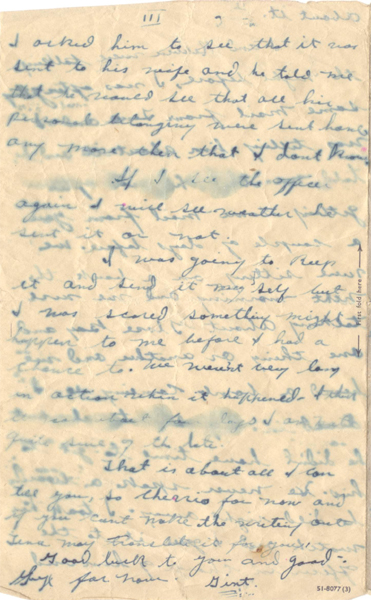 III
I asked him to see that it was
sent to his wife and he told me
that would see that all his
personal belonging were sent home
any more then that I dont know
If I see the office
again I will see weather
sent it or not.
I was going to keep
it and send it my self but
I was scared something might
happen to me before I had a
chance to. We weren't very long
in action when it happened. I
quite
That is about all I can
tell you, so cheerio for now and
if you can't make the writing out
may translate it for you.
Good luck to you and good-
bye for now. Gint.
First fold here
51-8077 (3)